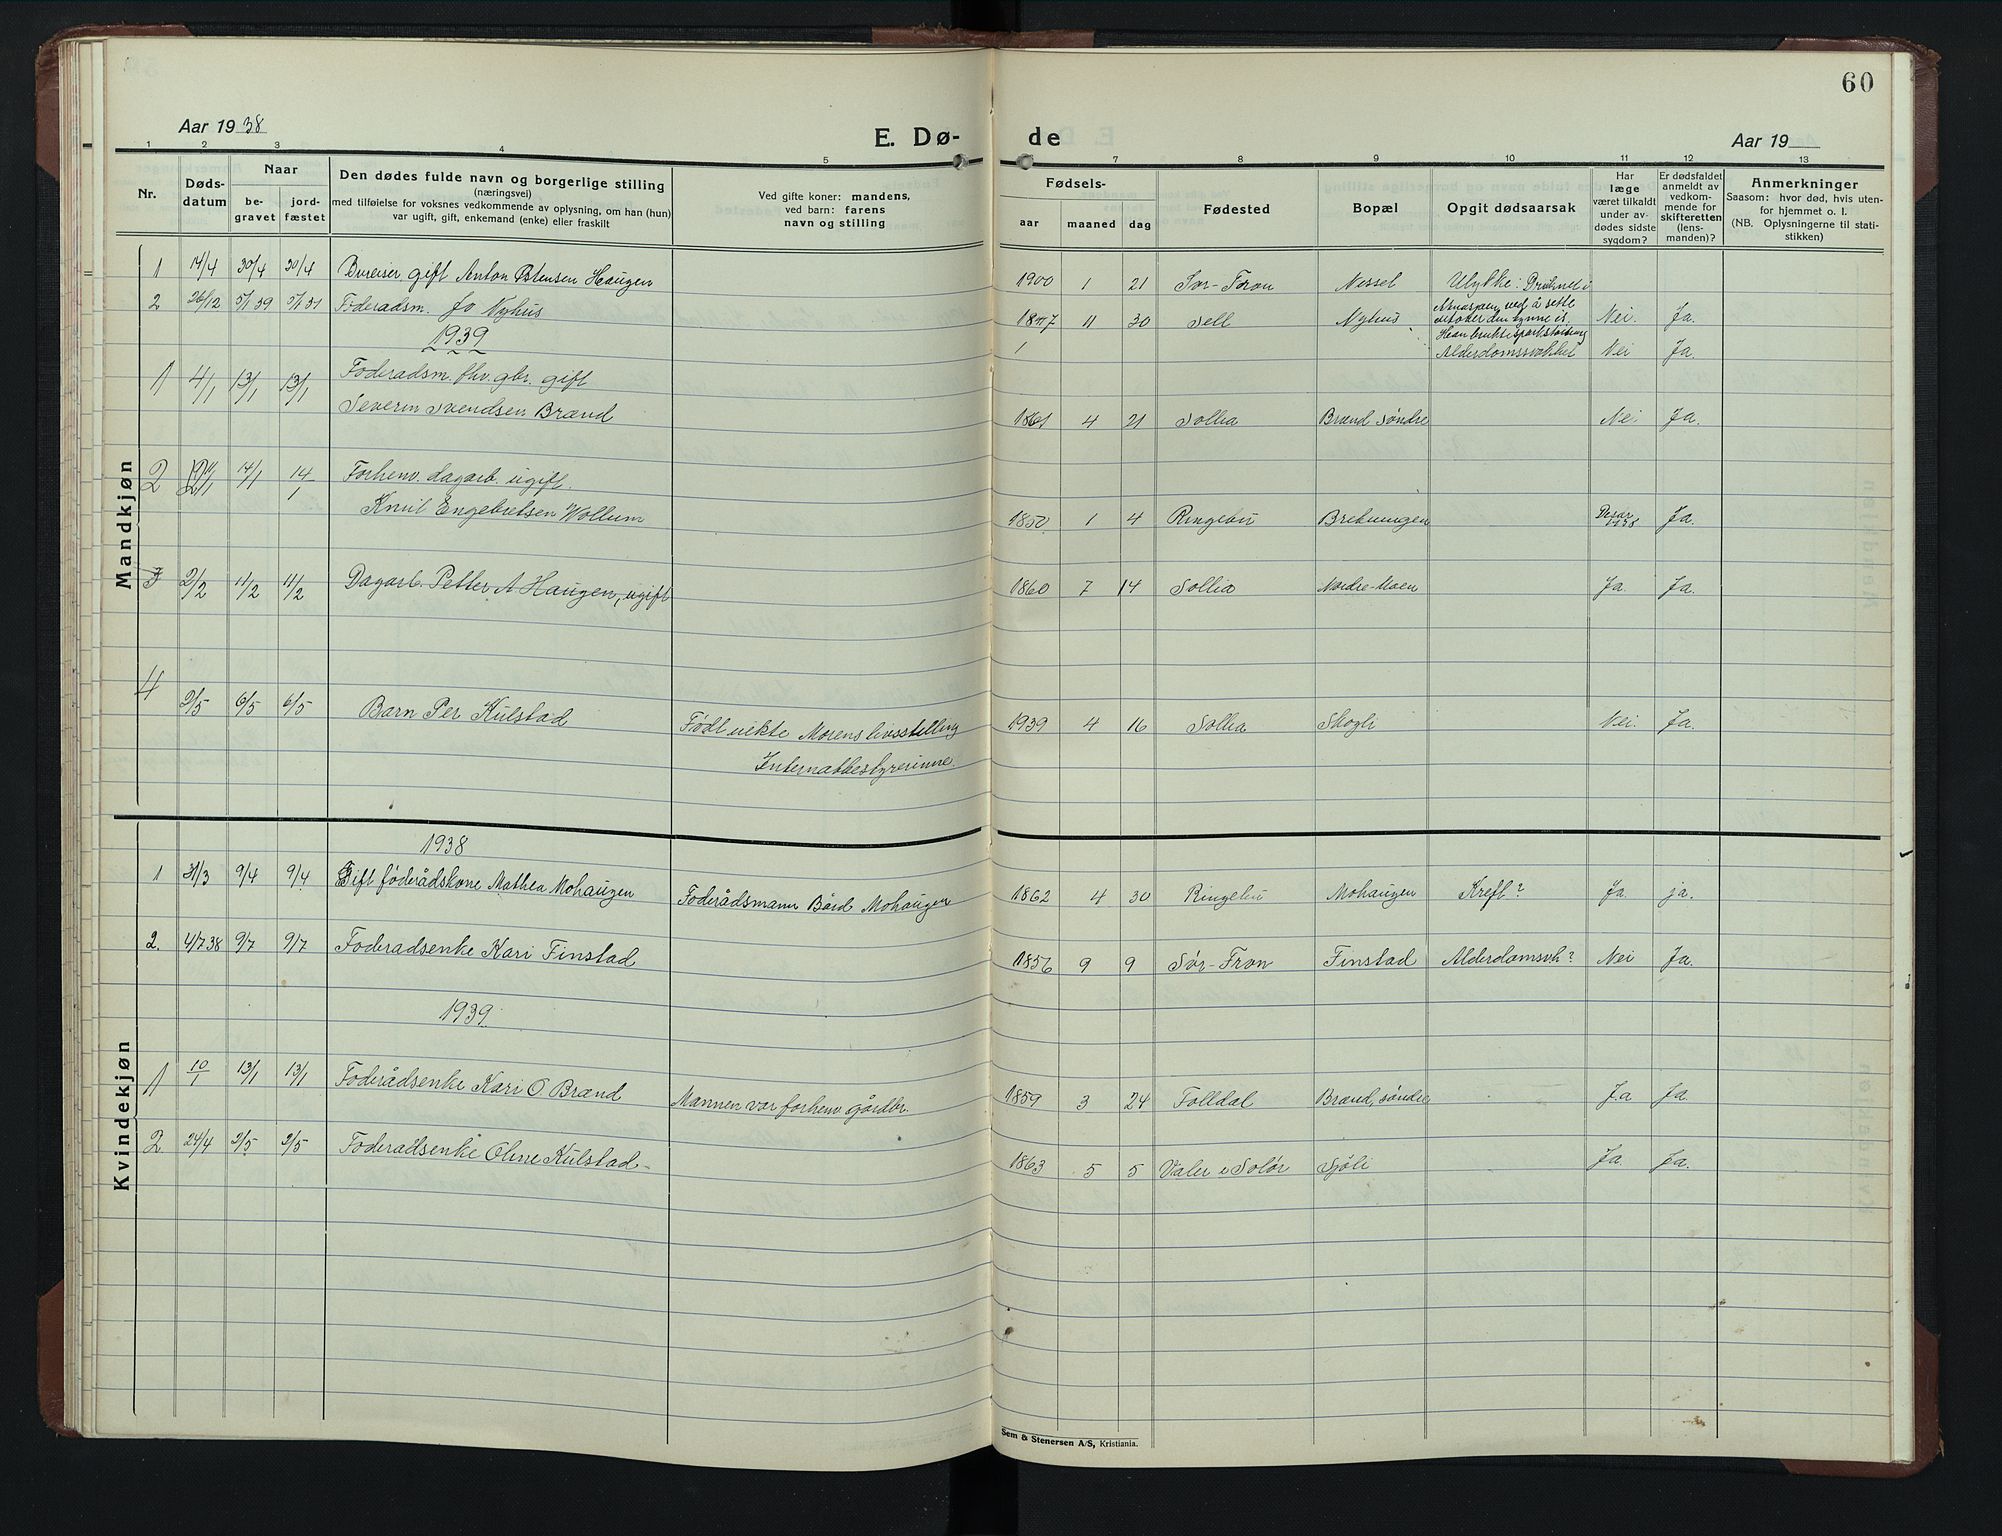 60
Aar 1938
E. Dø-
de
Aar 19
1 2 3 4 5
7 8 9 10 11 12 13
Nr.
Døds-
datum
Naar
be-
gravet
jord-
fæstet
Den dødes fulde navn og borgerlige stilling
(næringsvei)
med tilføielse for voksnes vedkommende av oplysning, om han (hun)
var ugift, gift, enkemand (enke) eller fraskilt
Ved gifte koner: mandens,
ved barn: farens
navn og stilling
Fødsels-
aar maaned dag
Fødested
Bopæl
Opgit dødsaarsak
Har
læge
været tilkaldt
under av-
dødes sidste
sygdom?
Er dødsfaldet
anmeldt av
vedkom-
mende for
skifteretten
(lens-
manden)?
Anmerkninger
Saasom: hvor død, hvis uten-
for hjemmet o. l.
(NB. Oplysningerne til stati-
stikken)
Mandkjøn
1 14/4 30/4 30/4 Bureiser, gift Anton Østensen Haugen 1900 1 21 Sør-Fron Nessel Ulykke: Druknet i
Atnasjøen ved å sette
2 26/12 5/1 39 5/1 39 Føderadsm. Jo Nyhus 11 30 Sell Nyhus Nei. Ja.
1939
Alderdomssvakhet Nei Ja.
1 4/1 13/1 13/1 Føderadsm. fhv. gbr. gift
Severin Svendsen Brænd 1861 4 21 Sollia Brænd søndre Nei. Ja.
2 14/1 14/1 Forhenv. dagarb. ugift.
Knut Engebretsen Wollum 1850 1 4 Ringebu Bretningen Ja.
3 2/2 11/2 11/2 Dagarb. Petter A Haugen, ugift 1860 7 14 Sollia Nordre-Moen Ja. Ja.
4 2/5 6/5 6/5 Barn Per Kulstad Født uekte Morens livsstilling 1939 4 16 Sollia Skogli Nei. Ja.
Internatbestyrerinne.
Kvindekjøn
1938
1 31/3 9/4 9/4 Gift føderådskone Mathea Mohaugen Føderådsmann Bård Mohaugen 1862 4 30 Ringebu Mohaugen Kreft? Ja. ja.
2. 4/7 38 9/7 9/7 Føderadsenke Kari Finstad 1856 9 9 Sør-Fron Finstad Alderdomsvh? Nei Ja.
1939
1 10/1 13/1 13/1 Føderådsenke Kari O. Brænd Mannen var forhenv gårdbr. 1859 3 24 Folldal Brænd, søndre Ja Ja
2 24/4 2/5 2/5 Føderadsenke Oline Kulstad- 1863 5 5 Våler i Solør Sjøli Ja. Ja.
Sem & Stenersen A/S, Kristiania.